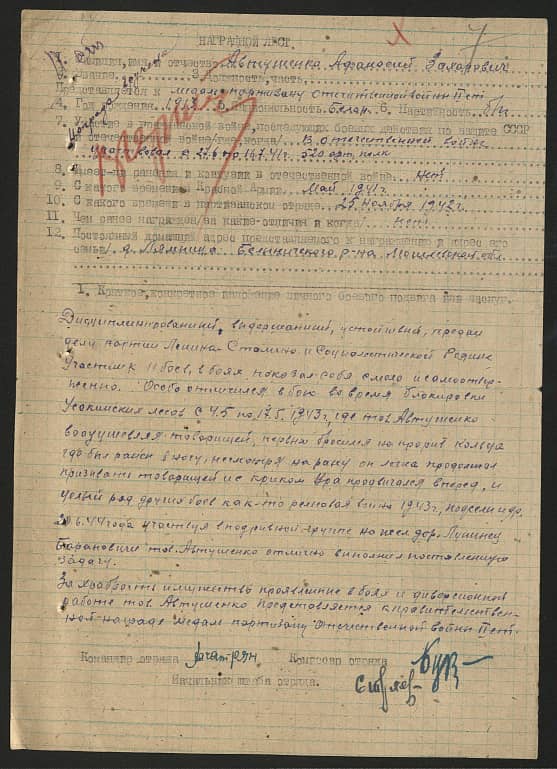 7
НАГРАДНОЙ ЛИСТ.
Фамилия, имя и отчество Автушенко Афанасий Захарович
2. Звание. 3. Должность, часть.
Представляется к медали партизану отечественной войны II ст.
4. Год рождения. 5. Национальность. Белар. 6. Партийность. б/п
7. Участие в гражданской войне, последующих боевых действиях по защите СССР
и отечественной войне /где, когда/. В отечественной войне
участвовал с 520 арт. полк
8. Имеет ли ранения и контузии в отечественной войне. нет
9. С какого времени в Красной Армии. Май 1941г.
10. С какого времени в партизанском отряде. 25 ноября 1942г.
11. Чем ранее награжден /за какие отличия и когда/. нет
12. Постоянный домашний адрес представляемого к награждению и адрес его
семьи/. д. Белыничского р-на Могилевской обл.
1. Краткое, конкретное изложение личного боевого подвига или заслуг.
Дисциплинированный, выдержанный, устойчивый, предан
делу партии Ленина-Сталина и Социалистической Родине
Участник 11 боев, в боях показал себя смело и самоотвер-
женно. Особо отличился в бою во время блокировки
Усакинских лесов с 4.5 по 17.5. 1943г, где тов. Автушенко
воодушевляя товарищей, первым бросился на прорыв кольца
где был ранен в ногу, несмотря на рану он продолжал
призывать товарищей и с криком Ура продвигался вперед, и
целый ряд других боев как-то рельсовая война 1943г,
6.44 года участвуя в подрывной группе на жел. дор. Лунинец
Барановичи тов. Автушенко отлично выполнил поставленную
задачу.
За храбрость и мужество проявленные в боях и диверсионной
работе тов. Автушенко представляется к правительствен-
ной награде медали партизану Отечественной войны II ст.
Командир отряда Комиссар отряда
Начальник штаба отряда.